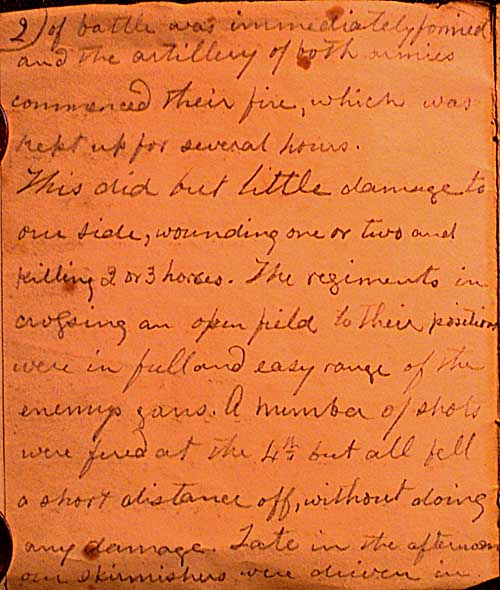 2) of battle was immediately formed
and the artillery of both armies
commenced their fire, which was
kept up for several hours.
This did but little damage to
our side, wounding one or two and
killing 2 or 3 horses. The regiments in
crossing an open field to their position
were in full and easy range of the
enemys guns. A number of shots
were fired at the 4th but all fell
a short distance off, without doing
any damage. Late in the afternoon
our skirmishers were driven in